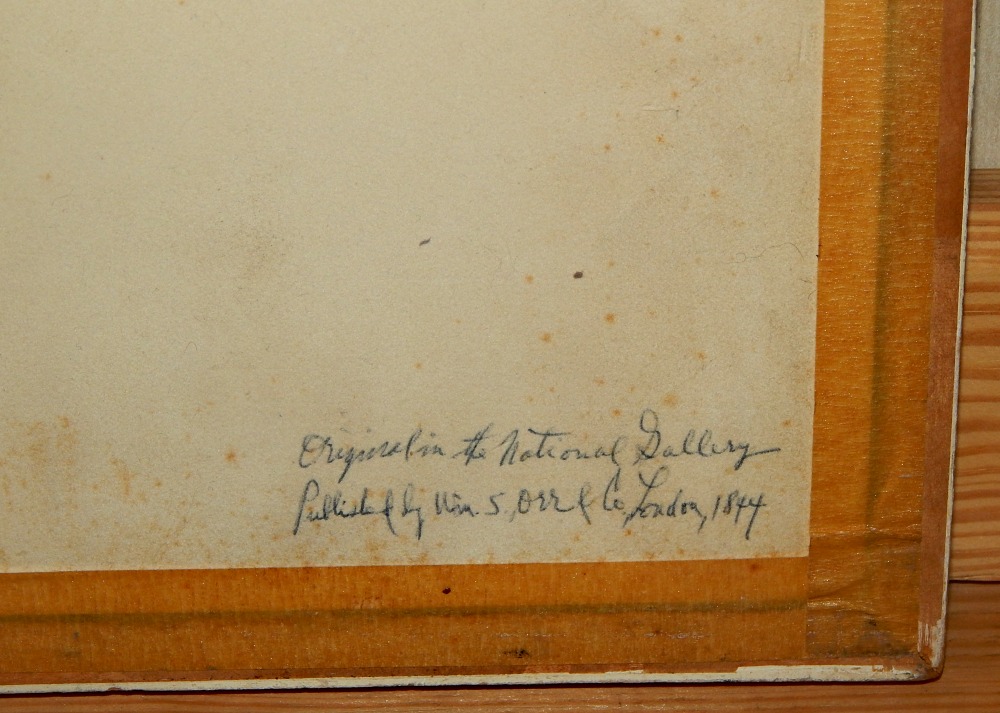 Original in the National Gallery
Published by Wm. S. Orr & Co, London, 1844